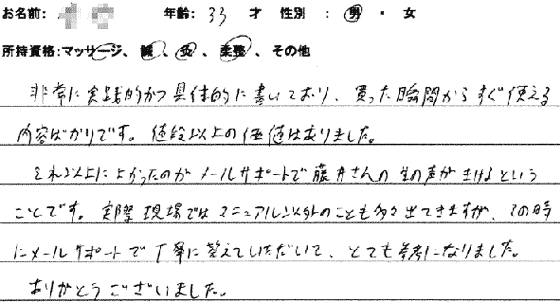 お名前: 年齢: 33 才 性別 : 男 ・ 女
所持資格:マッサージ、鍼、灸、柔整、その他
非常に実践的かつ具体的に書いており、買った瞬間からすぐ使える
内容ばかりです。値段以上の価値はありました。
それ以上によかったのがメールサポートで藤井さんの生の声がきけるという
ことです。実際現場ではマニュアル以外のことも多々出てきますが、その時
にメールサポートで丁寧に答えていただいて、とても参考になりました。
ありがとうございました。